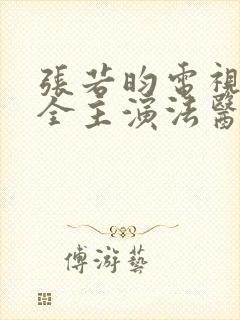 張若昀電視
全主演法醫
傅游藝